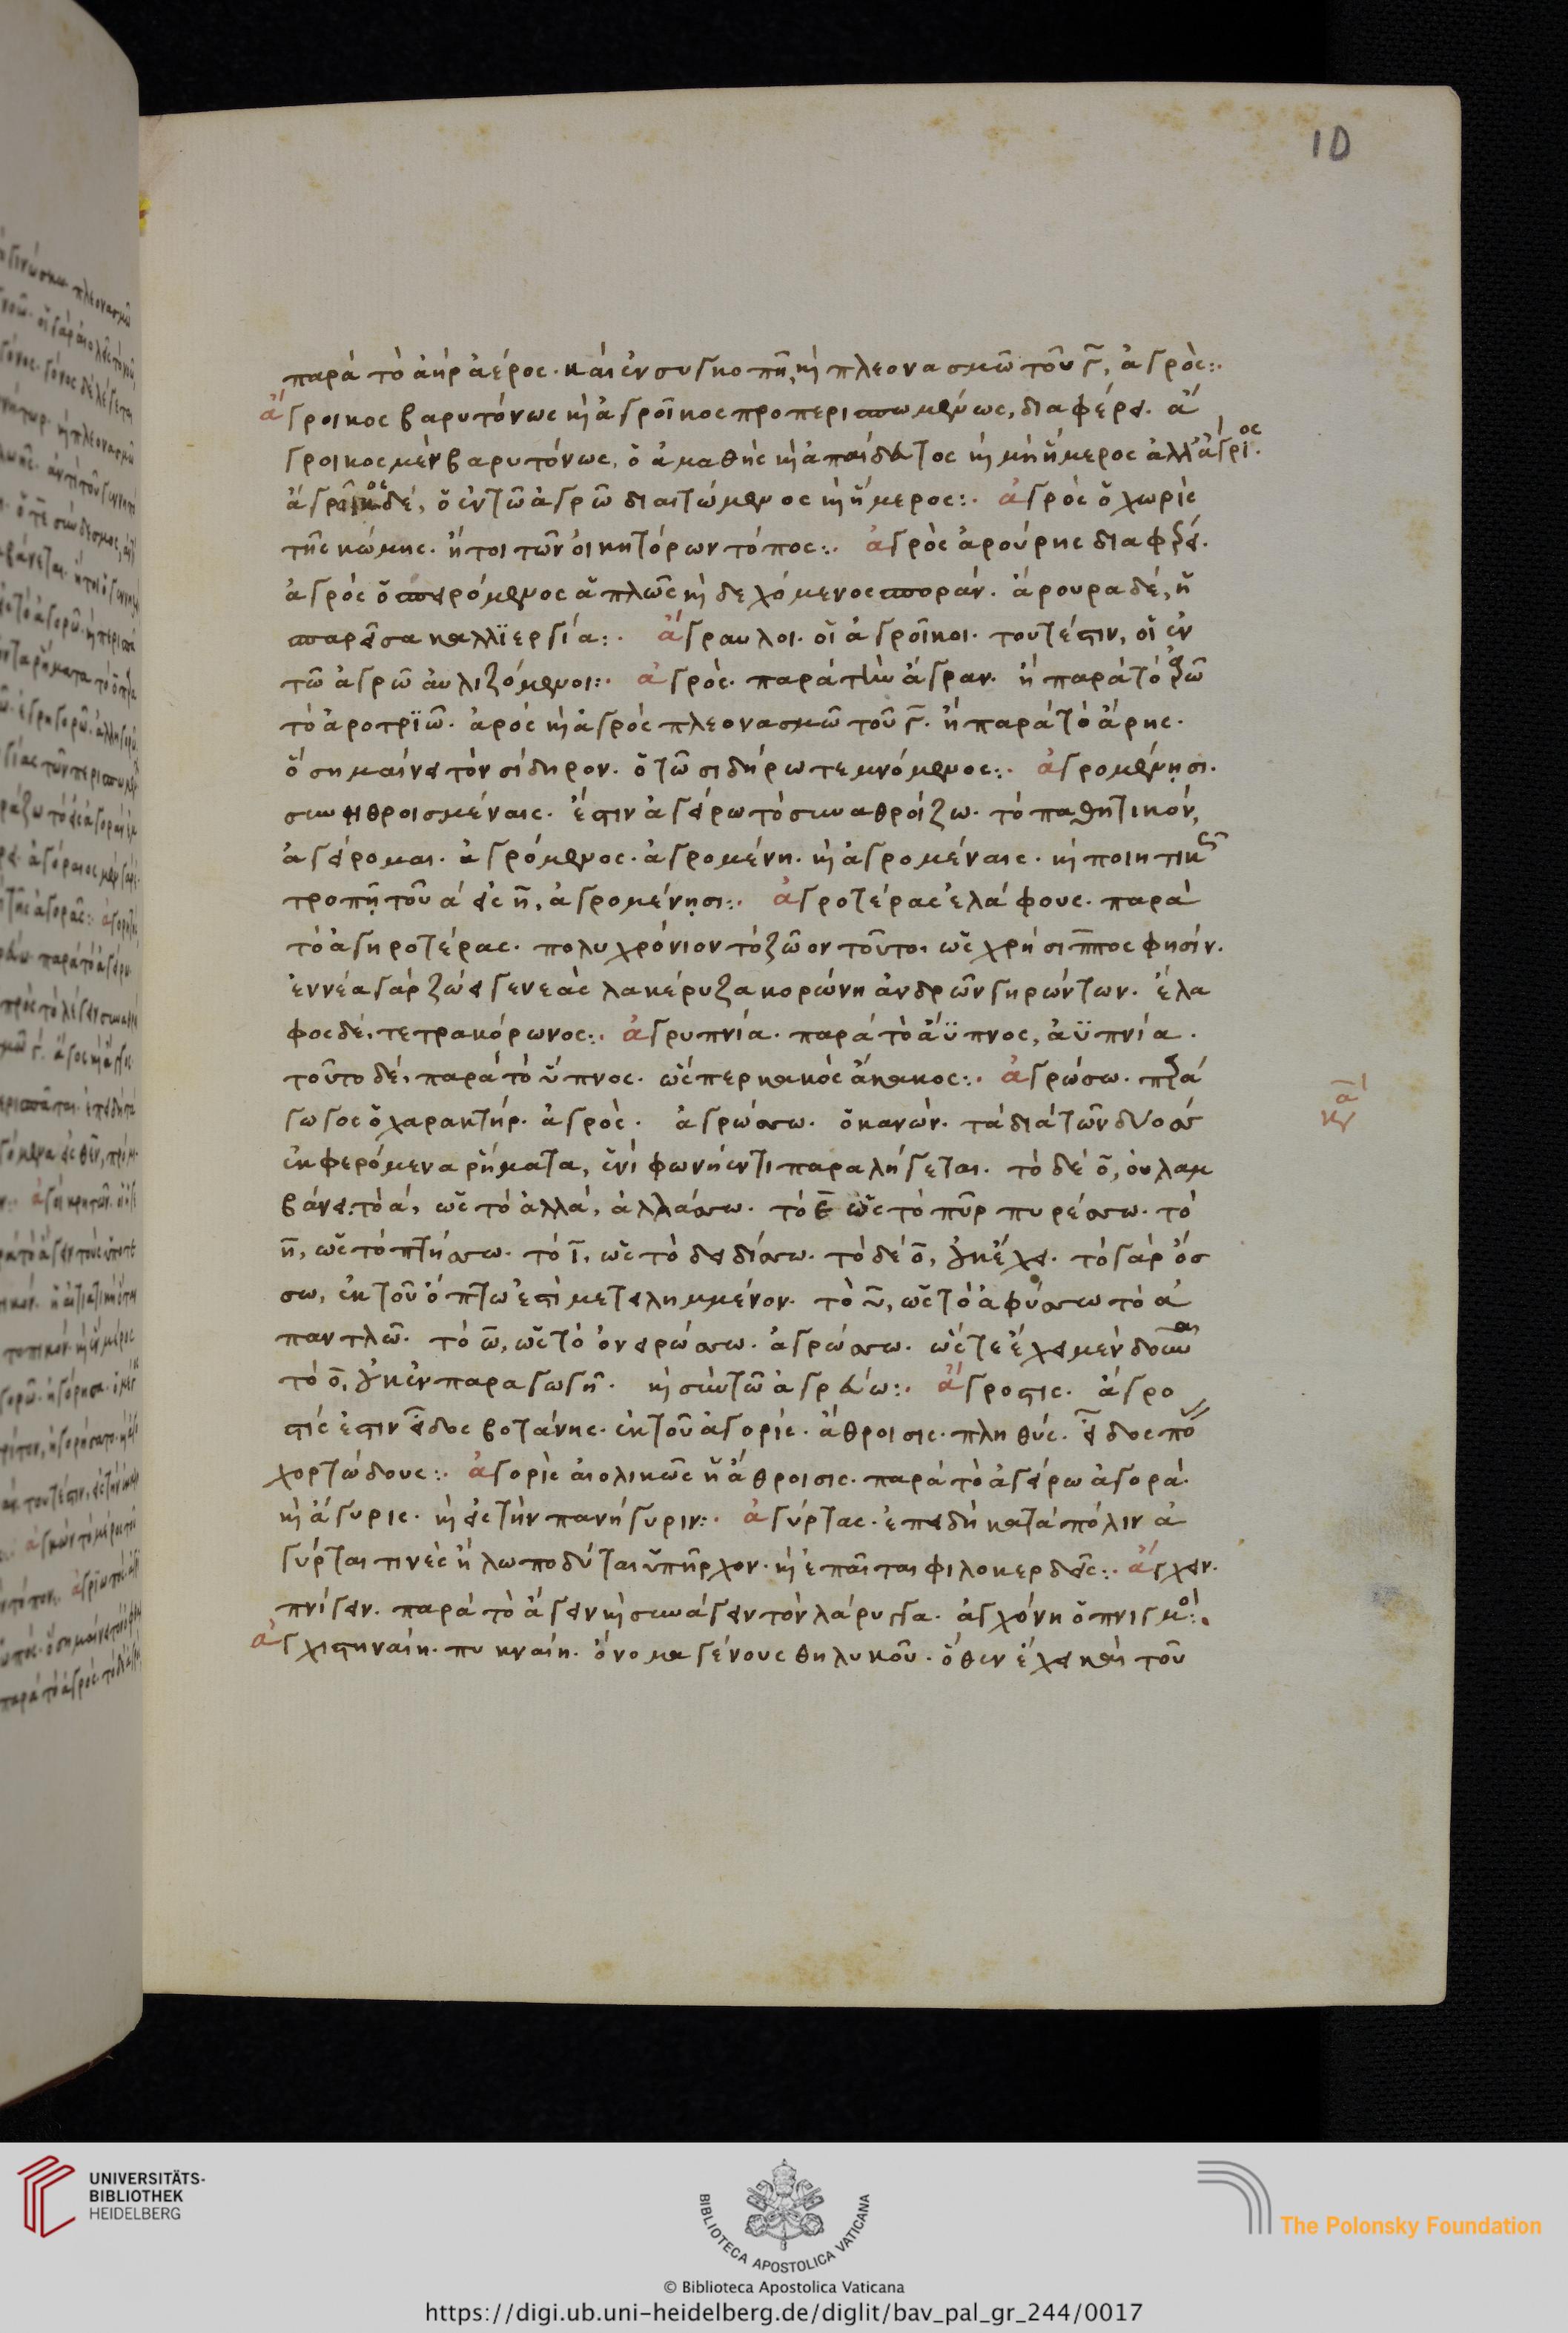 10
παρὰ τὸ ἀὴρ ἀέρος· καὶ ἐν συγκοπῇ, καὶ πλεονασμῶ τοῦ γ̄, ἀγρὸς:·
ἄγροικος βαρυτόνως καὶ ἀγροῖκος προπερισπωμένως, διαφέρει. ἄ
γροικος μὲν βαρυτόνως, ὁ ἀμαθὴς καὶ ἀπαίδευτος καὶ μὴ ἥμερος ἀλλ' ἄγριος.
ἀγροῖκος δὲ, ὁ ἐν τῶ ἀγρῶ διαιτώμενος καὶ ἥμερος:· ἀγρὸς ὁ χωρὶς
τῆς κώμης. ἤτοι τῶν οἰκητόρων τόπος:· ἀγρὸς ἀρούρης διαφέρει.
ἀγρὸς ὁ σπειρόμενος ἁπλῶς καὶ δεχόμενος σποράν. ἄρουρα δὲ, ἡ
σπαρεῖσα καλλϊεργία:· ἄγραυλοι. οἱ ἀγροῖκοι. τουτέστιν, οἱ ἐν
τῶ ἀγρῶ αὐλιζόμενοι:· ἀγρὸς. παρὰ τὴν ἄγραν. ἢ παρὰ τὸ ἀρῶ
τὸ ἀροτρϊῶ. ἀρὸς καὶ ἀγρὸς πλεονασμῶ τοῦ γ̄. ἢ παρὰ τὸ ἄρης.
ὃ σημαίνει τὸν σίδηρον. ὁ τῶ σιδήρω τεμνόμενος:· ἀγρομένησι.
συνηθροισμέναις. ἔστιν ἀγείρω τὸ συναθροίζω. τὸ παθητικόν,
ἀγείρομαι. ἀγρόμενος. ἀγρομένη. καὶ ἀγρομέναις. καὶ ποιητικῶς
τροπῇ τοῦ ᾱ εἰς η̄, ἀγρομένησι:· ἀγροτέρας ἐλάφους. παρὰ
τὸ ἀγηροτέρας. πολυχρόνιον τὸ ζῶον τοῦτο. ὡς χρήσιππος φησίν.
ἐννέα γὰρ ζώει γενεὰς λακέρυζα κορώνη ἀνδρῶν γηρώντων. ἔλα
φος δὲ, τετρακόρωνος:· ἀγρυπνία. παρὰ τὸ ἄϋπνος, ἀϋπνία.
τοῦτο δὲ, παρὰ τὸ ὕπνος. ὥσπερ κακὸς ἄκακος:· ἀγρώσω. παρά
γωγος ὁ χαρακτήρ. ἀγρὸς. ἀγρώσσω. ὁ κανών. τὰ διὰ τῶν δύο σσ
ἐκφερόμενα ῥήματα, ἑνὶ φωνήεντι παραλήγεται. τὸ δὲ ο̄, οὐ λαμ
βάνει. τὸ ᾱ, ὡς τὸ ἀλλά, ἀλλάσσω. τὸ ε̄ ὡς τὸ πῦρ πυρέσσω. τὸ
η̄, ὡς τὸ πτήσσω. τὸ ῑ, ὡς τὸ δειδίσσω. τὸ δὲ ο̄, οὐκ ἔχει. τὸ γὰρ ὄσ
σω, ἐκ τοῦ ὄπτω ἐστὶ μετειλημμένον. τὸ ῡ, ὡς τὸ ἀφύσσω τὸ ἀ
παντλῶ. τὸ ω̄, ὡς τὸ ὀνειρώσσω. ἀγρώσσω. ὥστε ἔχει μὲν δοῦναι
τὸ ο̄, οὐκ ἐν παραγωγῇ. καὶ σὺν τῶ ἀγρεύω:· ἄγροστις. ἄγρο
στίς ἐστιν εἶδος βοτάνης. ἐκ τοῦ ἀγορὶς. ἄθροισις. πληθύς. εἶδος πόας
χορτώδους:· ἀγορὶς αἰολικῶς ἡ ἄθροισις. παρὰ τὸ ἀγείρω ἀγορά.
καὶ ἄγυρις. καὶ εἰς τὴν πανήγυριν:· ἀγύρτας. ἐπειδὴ κατὰ πόλιν ἀ
γύρται τινὲς ἢ λωποδύται ὑπῆρχον. καὶ ἐπαῖται φιλοκερδεῖς:· ἄγχειν.
πνίγειν. παρὰ τὸ ἄγειν καὶ συνάγειν τὸν λάρυγγα. ἀγχόνη ὁ πνιγμός:·
ἀγχιστηναίη. πυκναίη. ὄνομα γένους θηλυκοῦ. ὅθεν ἔχει καὶ τοῦ
UNIVERSITÄTS-
BIBLIOTHEK
HEIDELBERG
BIBLIOTECA APOSTOLICA VATICANA
The Polonsky Foundation
© Biblioteca Apostolica Vaticana
https://digi.ub.uni-heidelberg.de/diglit/bav_pal_gr_244/0017